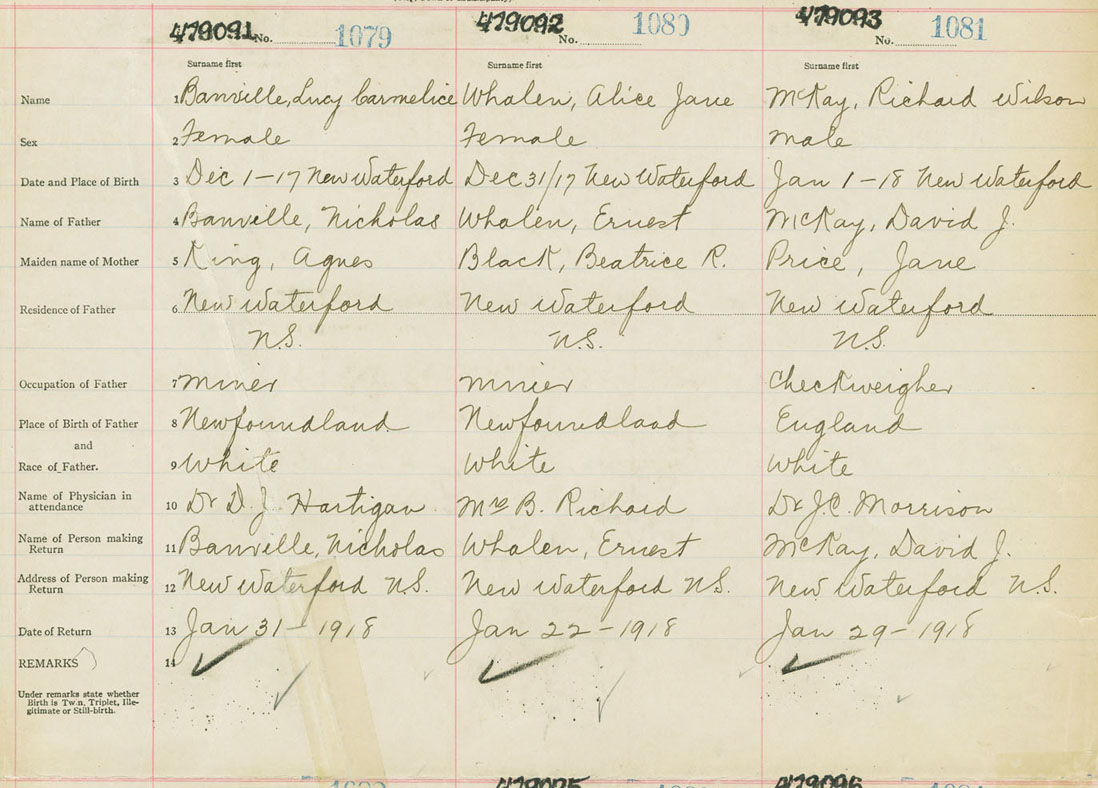 479091 No. 1079 479092 No. 1080 479093 No. 1081
Surname first Surname first Surname first
Name 1 Banville, Lucy Carmelice Whalen, Alice Jane McKay, Richard Wilson
Sex 2 Female Female male
Date and Place of Birth 3 Dec 1-17 New Waterford Dec 31/17 New Waterford Jan 1-18 New Waterford
Name of Father 4 Banville, Nicholas Whalen, Ernest McKay, David J.
Maiden name of Mother 5 King, Agnes Black, Beatrice R. Price, Jane
Residence of Father 6 New Waterford New Waterford New Waterford
N.S. N.S. N.S.
Occupation of Father 7 miner miner Checkweigher
Place of Birth of Father 8 Newfoundland Newfoundland England
and
Race of Father. 9 White White White
Name of Physician in
attendance 10 Dr D. J. Hartigan Mrs B. Richard Dr J.C. Morrison
Name of Person making
Return 11 Banville, Nicholas Whalen, Ernest McKay, David J.
Address of Person making
Return 12 New Waterford N.S. New Waterford N.S. New Waterford N.S.
Date of Return 13 Jan 31-1918 Jan 22-1918 Jan 29-1918
REMARKS 14
Under remarks state whether
Birth is Twin, Triplet, Ille-
gitimate or Still-birth.